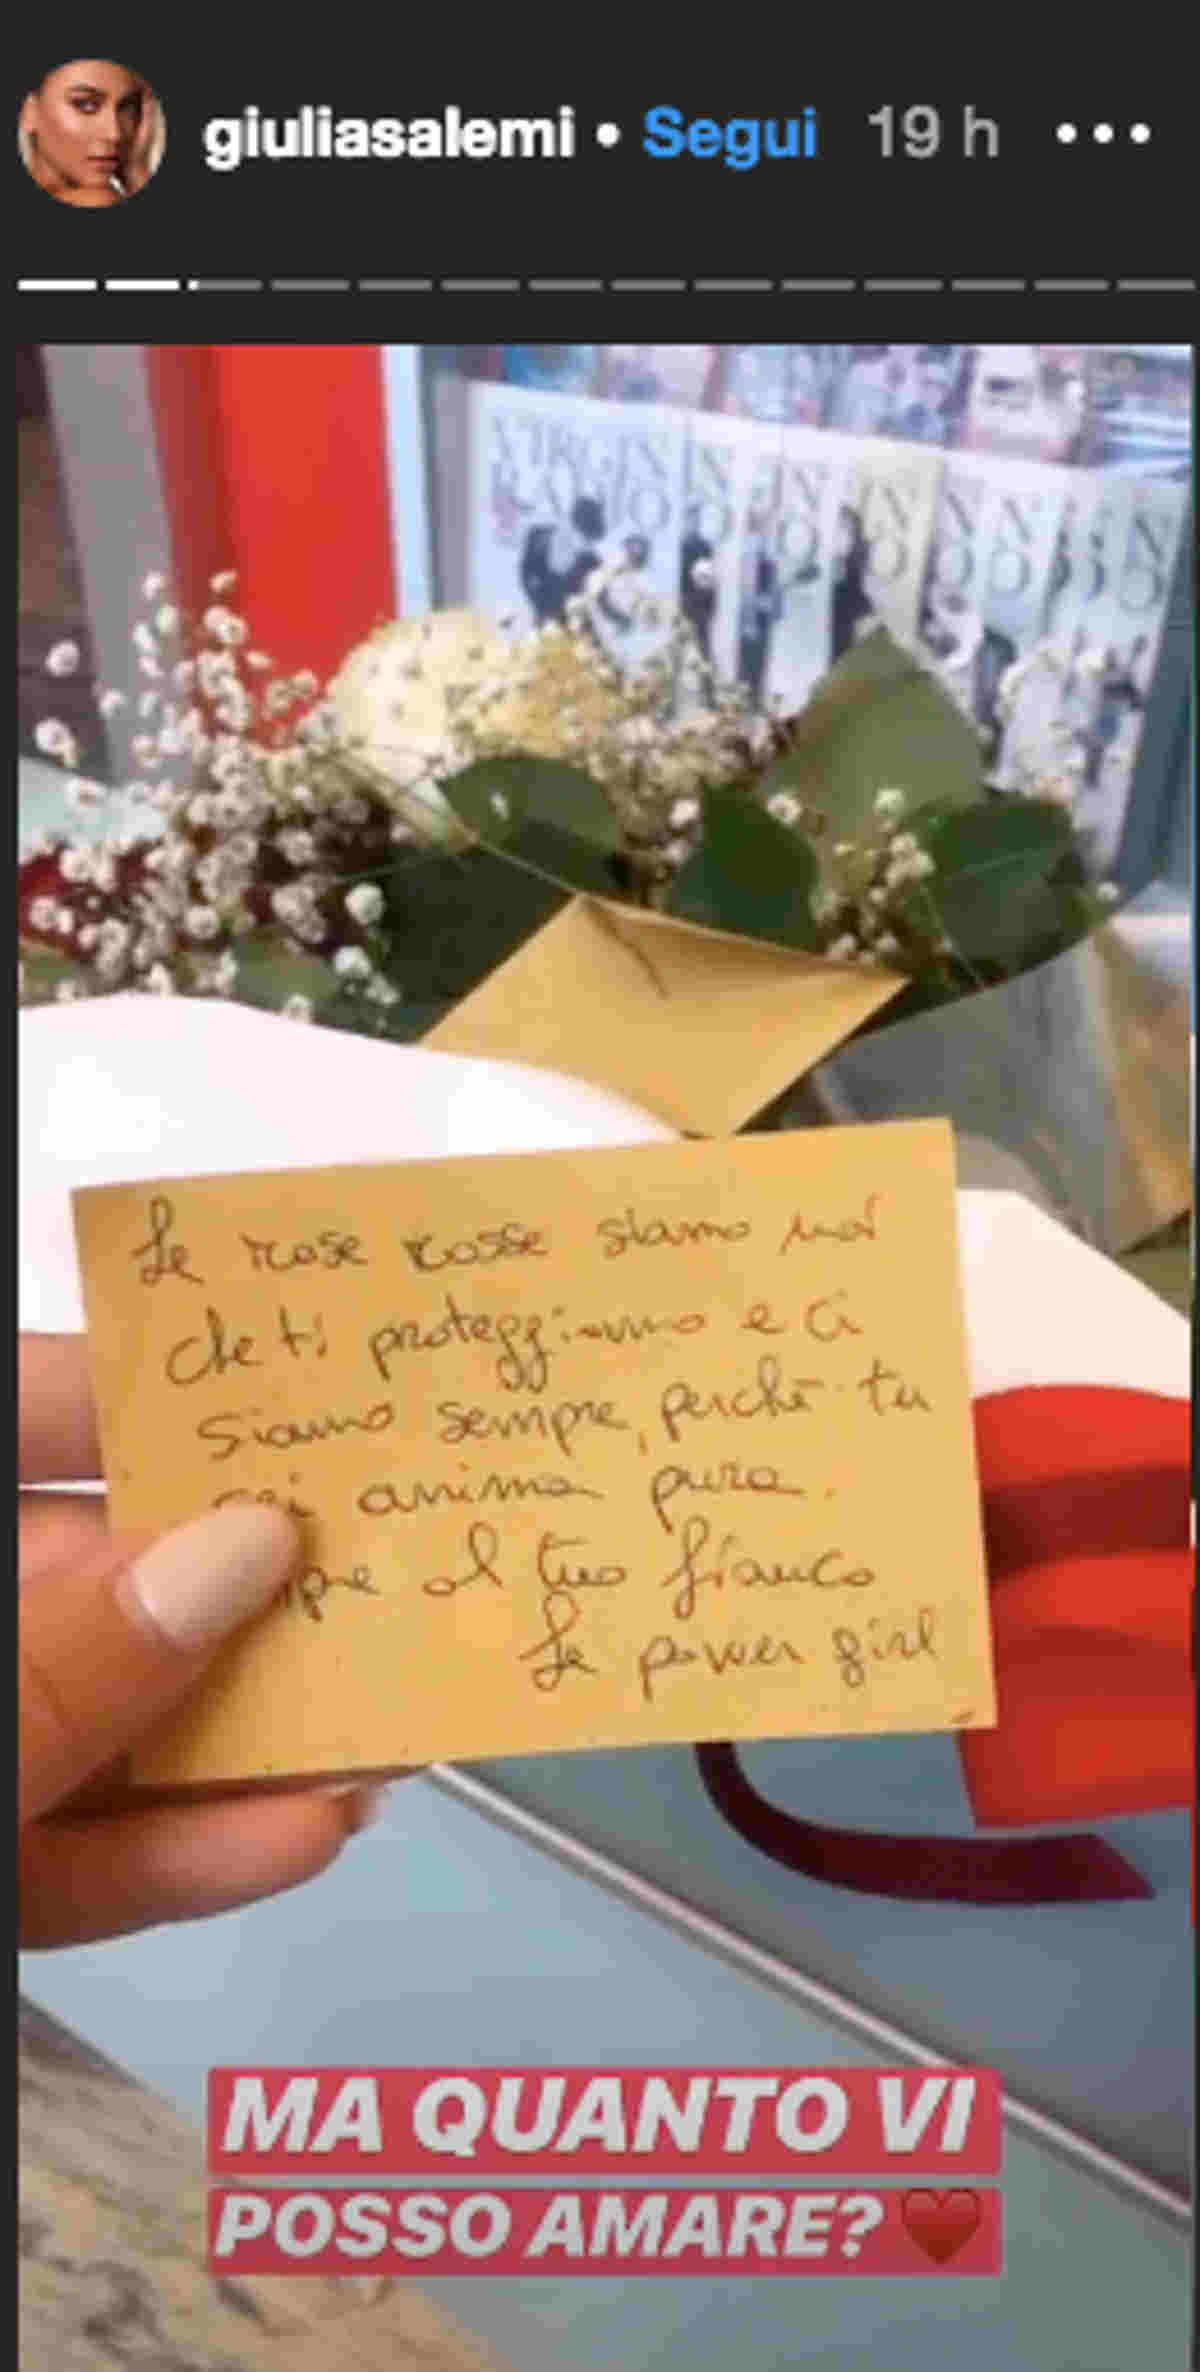 giuliasalemi • Segui 19 h •••
VIRGIN
RADIO
Le rose rosse siamo noi
che ti proteggiamo e ci
siamo sempre, perchè tu
sei anima pura.
al tuo fianco
Le power girl
MA QUANTO VI
POSSO AMARE? ❤️